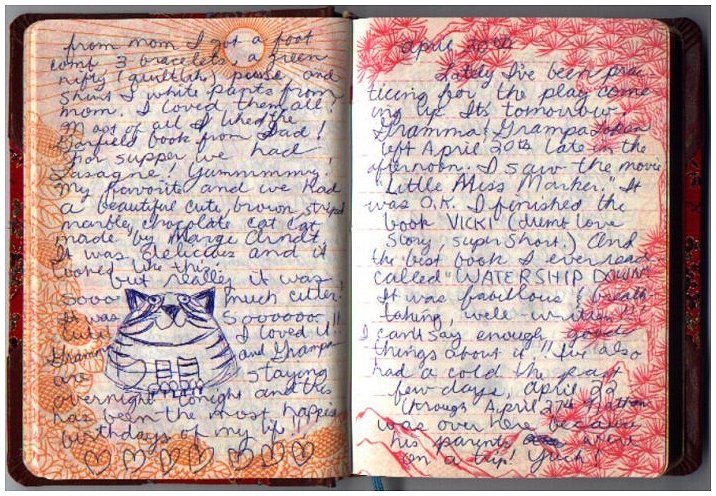 from mom I got a foot
comb 3 bracelets, a green
nifty (quiltish) purse, and
shirt & white pants from
mom. I loved them all!
Most of all I liked the
Garfield book from Dad!
For supper we had
Lasagne! Yummmmy!
My favorite and we had
a beautiful cute, brown, striped
marbley chocolate cat cat
made by Marge Arndt.
It was delicious and it
looked like this
but really it was
sooo much cuter!
It was Soooooo
cute I loved it!!
Gramma and Grampa
are staying
overnight tonight and this
has been the most happiest
birthdays of my life!!
april 30th
Lately I've been prac-
ticing for the play come-
ing up. It's tomorrow.
Gramma & Grampa
left April 20th late in the
afternoon. I saw the movie
"Little Miss Marker." It
was O.K. I finished the
book VICKI (dumb love
story, super short.) And
the best book I ever read
called "WATERSHIP DOWN"
It was fabulous & breath-
taking, well-written!!!
I can't say enough good
things about it!! I've also
had a cold the past
few days, april 22
through April 27th. Nathan
was over here because
his parents were
on a trip! Yuch!